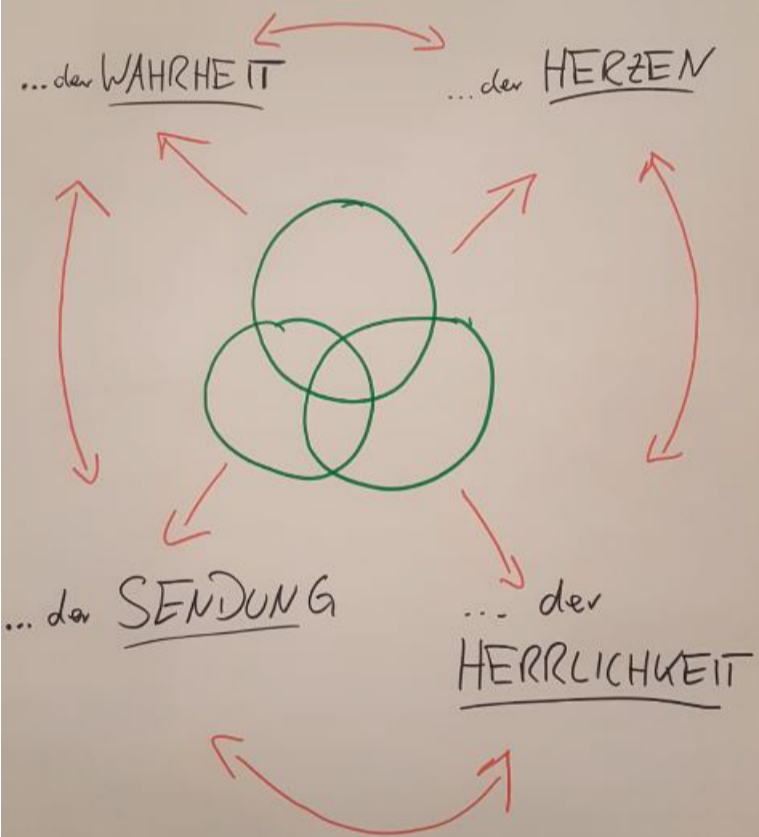 ...der WAHRHEIT
...der HERZEN
...der SENDUNG
... der
HERRLICHKEIT